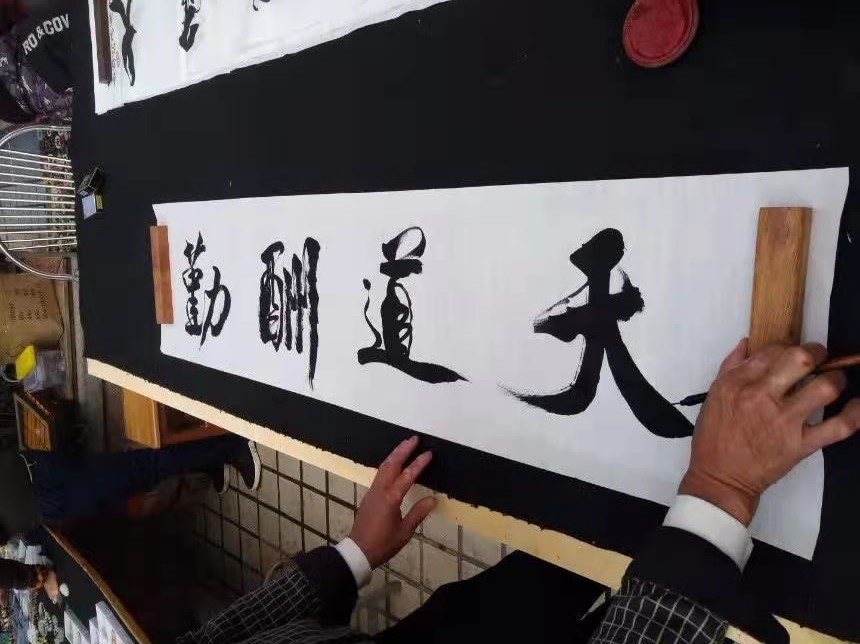 天道酬勤
RO & COV